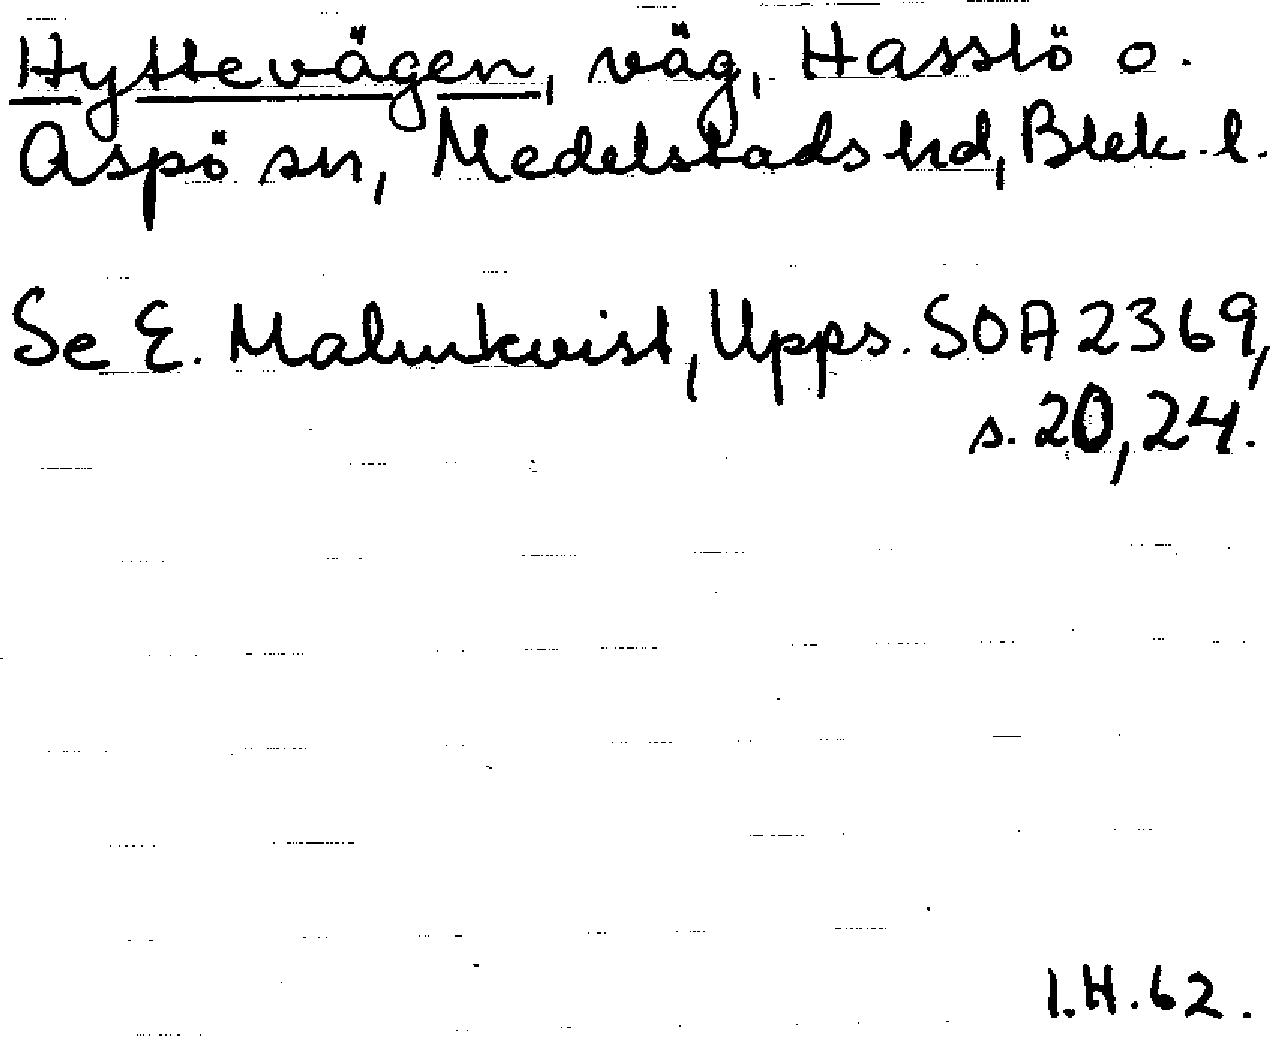 Hyttevägen, väg, Hasslö o.
Aspö sn, Medelstads hd, Blek. l.
Se E. Malmkvist, Upps. SOA 2369,
s. 20, 24.
I.H. 62.